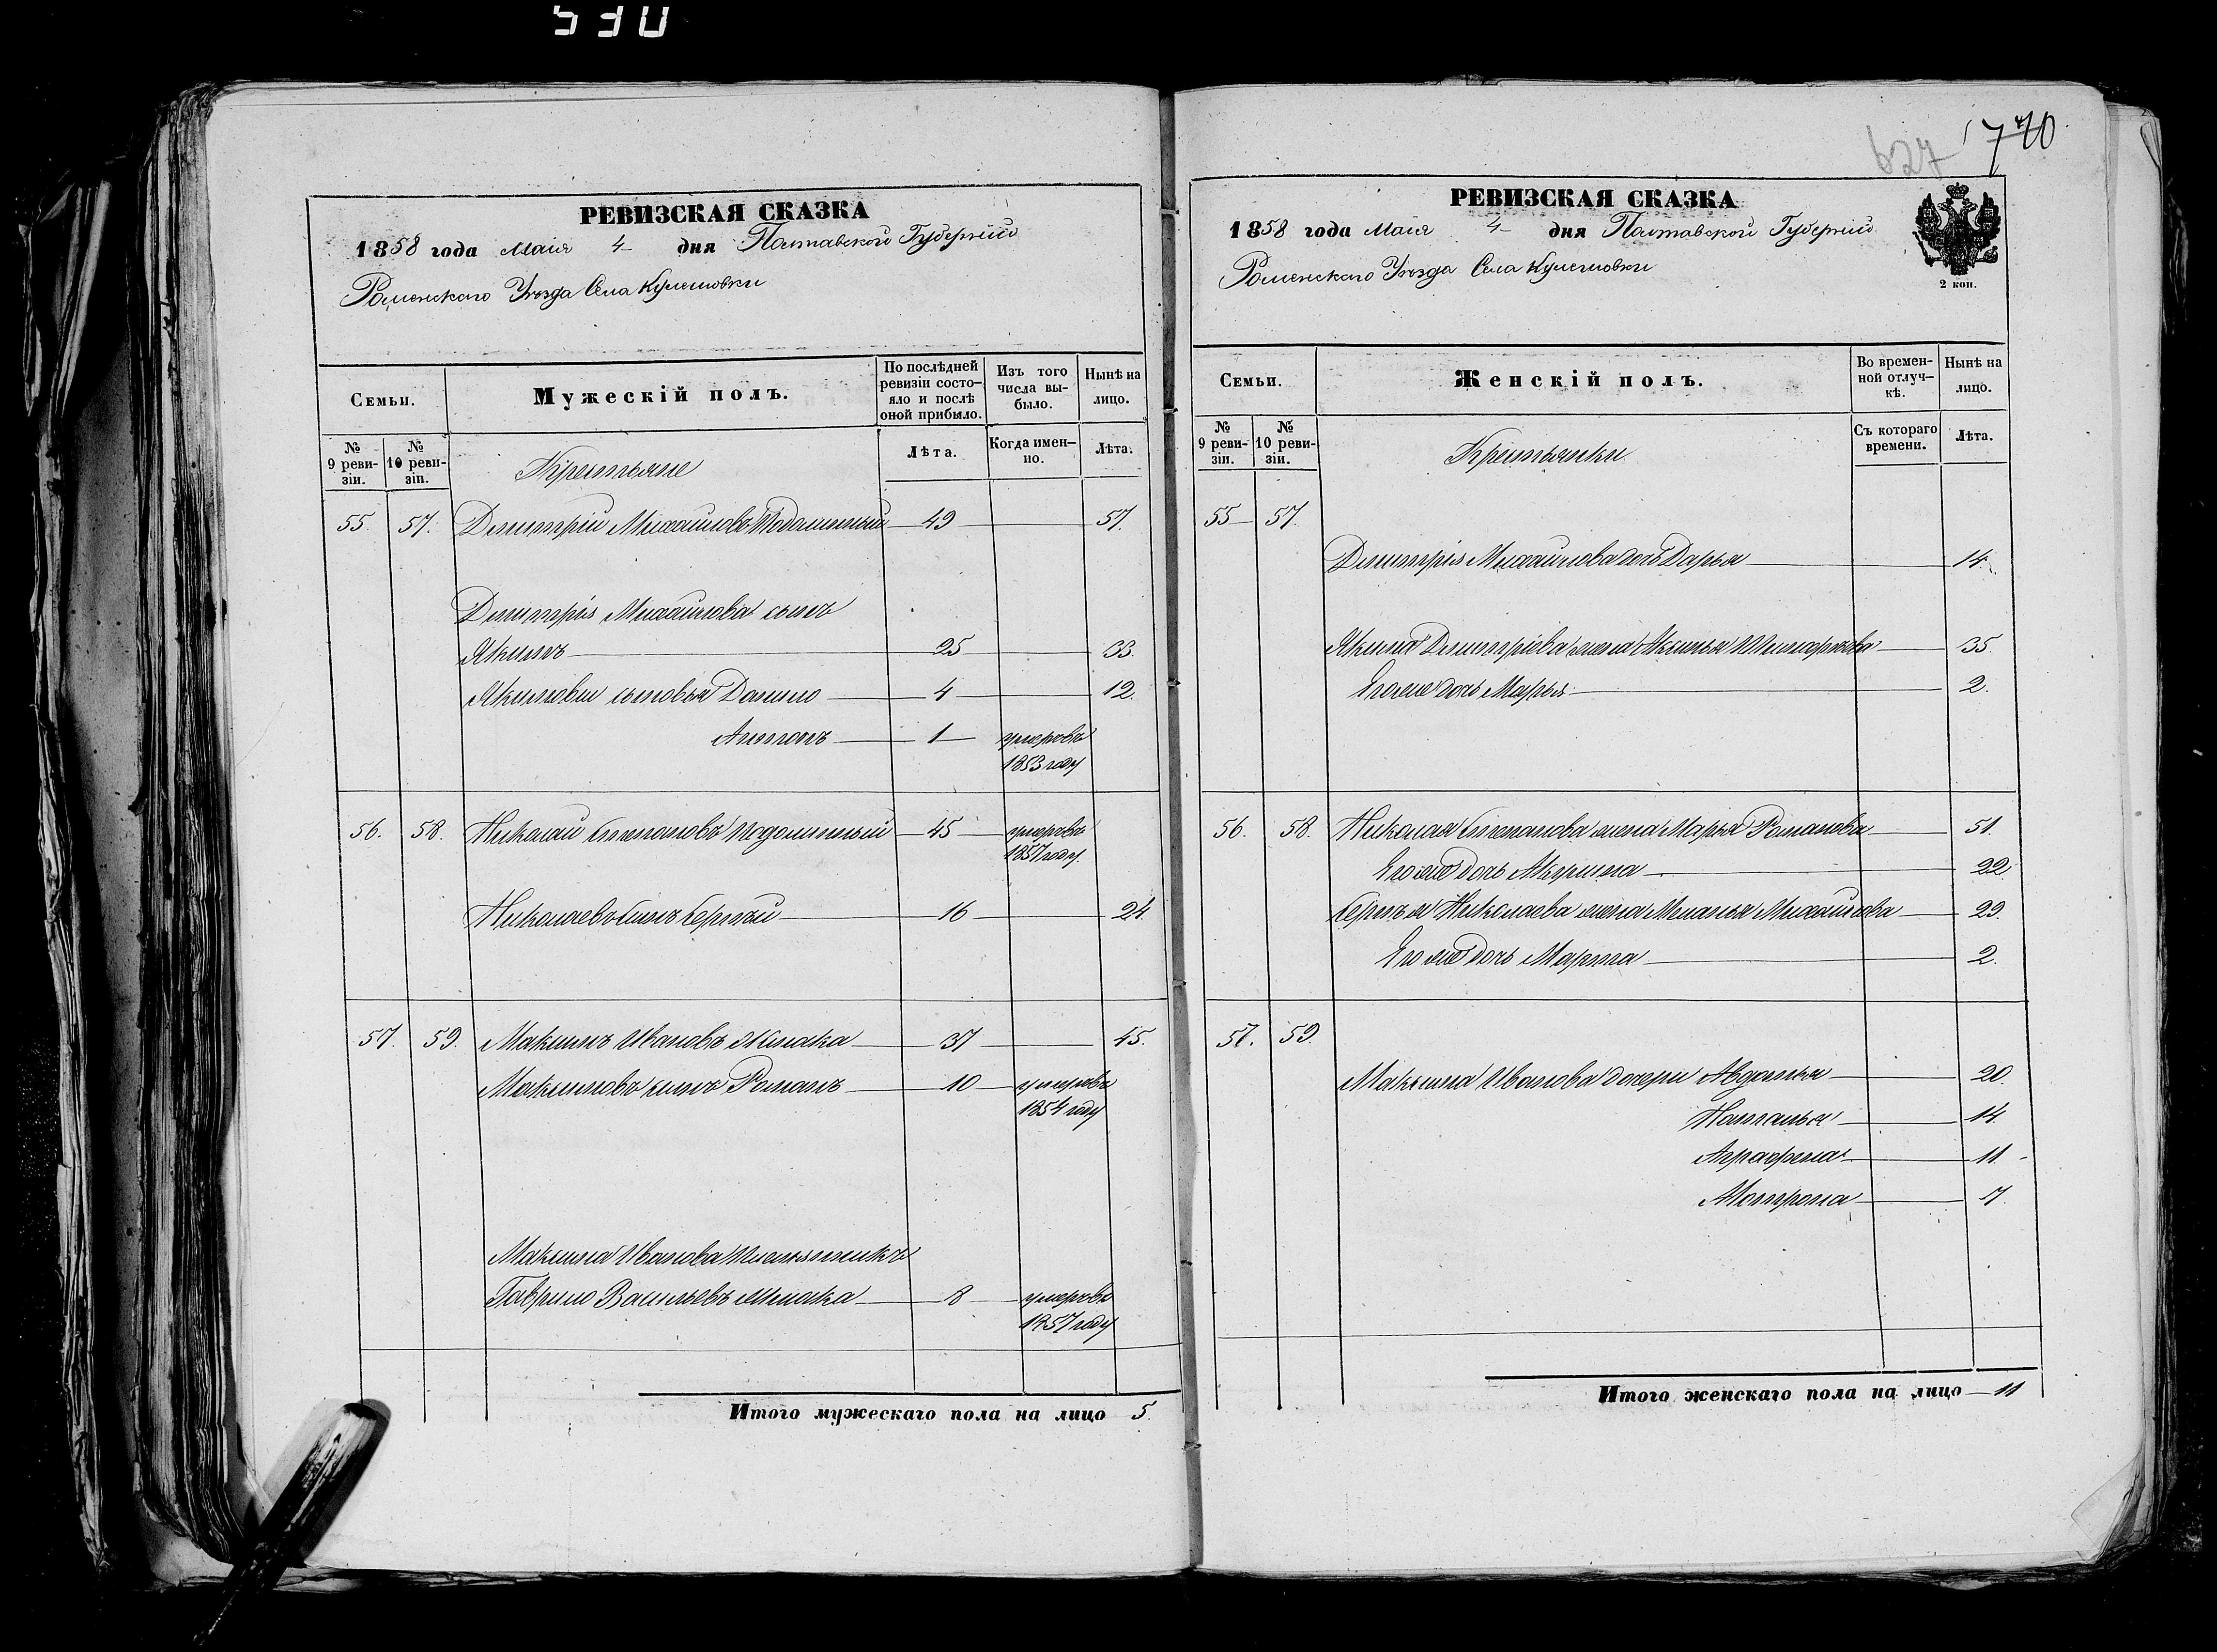 530
РЕВИЗСКАЯ СКАЗКА
1858 года Маія 4 дня Полтавской Губерніи
Роменскаго Уѣзда Села Кулешовки
Семьи.
Мужескій полъ.
По послѣдней ревизіи состояло и послѣ оной прибыло.
Изъ того числа выбыло.
Нынѣ на лицо.
№ 9 ревизіи.
№ 10 ревизіи.
Лѣта.
Когда именно.
Лѣта.
Крестьяне
55. 57. Дмитрій Михайловъ Подолинный 49 57.
Дмитрія Михайлова сынъ
Якимъ 25 33.
Якимовы сыновья Данило 4 12.
Антонъ 1 умеръ въ
1853 году
56. 58. Николай Степановъ Подолинный 45 умеръ въ
1857 году.
Николаевъ сынъ Сергѣй 16 24.
57. 59. Максимъ Ивановъ 37 45.
Максимовъ сынъ Романъ 10 умеръ въ
1854 году
Максима Иванова племянникъ
Гаврило Васильевъ 8 умеръ въ
1857 году
Итого мужескаго пола на лицо 5.
627 740
РЕВИЗСКАЯ СКАЗКА
1858 года Маія 4 дня Полтавской Губерніи
Роменскаго Уѣзда Села Кулешовки
2 коп.
Семьи.
Женскій полъ.
Во временной отлучкѣ.
Нынѣ на лицо.
№ 9 ревизіи.
№ 10 ревизіи.
Съ котораго времени.
Лѣта.
Крестьянки
55 57.
Дмитрія Михайлова дочь Дарья 14.
Якима Дмитріева жена Аксинья 35.
Его же дочь Марья 2.
56. 58. Николая Степанова жена Марья Романова 51.
Его же дочь Акулина 22.
Сергѣя Николаева жена Меланья Михайлова 29.
Его же дочь Марта 2.
57. 59.
Максима Иванова дочери Авдотья 20.
Наталья 14.
Аграфена 11.
Мотрона 7.
Итого женскаго пола на лицо 11